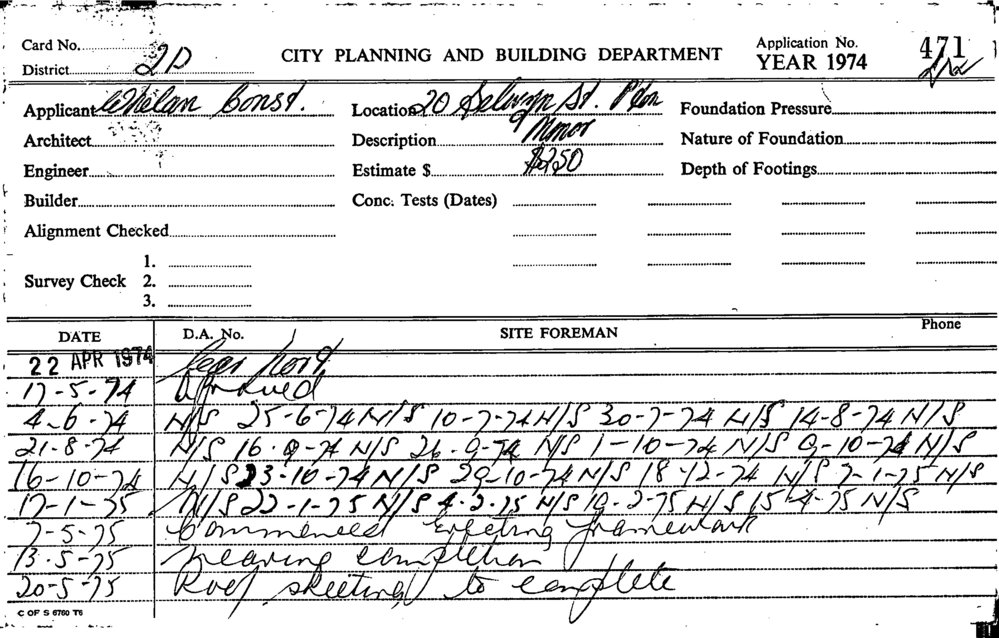 Card No.
District 2D
CITY PLANNING AND BUILDING DEPARTMENT
Application No.
YEAR 1974
471
2/12
Applicant Whelan Const.
Location 20 Selwyn St. P'ton
Foundation Pressure
Architect
Description Minor
Nature of Foundation
Engineer
Estimate $ $250
Depth of Footings
Builder
Conc. Tests (Dates)
Alignment Checked
Survey Check
1.
2.
3.
DATE D.A. No. SITE FOREMAN Phone
22 APR 1974
17-5-74 Approved
4-6-74 N/S 25-6-74 N/S 10-7-74 N/S 30-7-74 N/S 14-8-74 N/S
21-8-74 N/S 16-9-74 N/S 26-9-74 N/S 1-10-74 N/S 9-10-74 N/S
16-10-74 N/S 23-10-74 N/S 29-10-74 N/S 18-12-74 N/S 7-1-75 N/S
17-1-75 N/S 22-1-75 N/S 4-2-75 N/S 10-2-75 N/S 15-4-75 N/S
7-5-75 Commenced Erecting framework
13-5-75 nearing completion
20-5-75 Roof sheeting to complete
C OF S 6760 T6